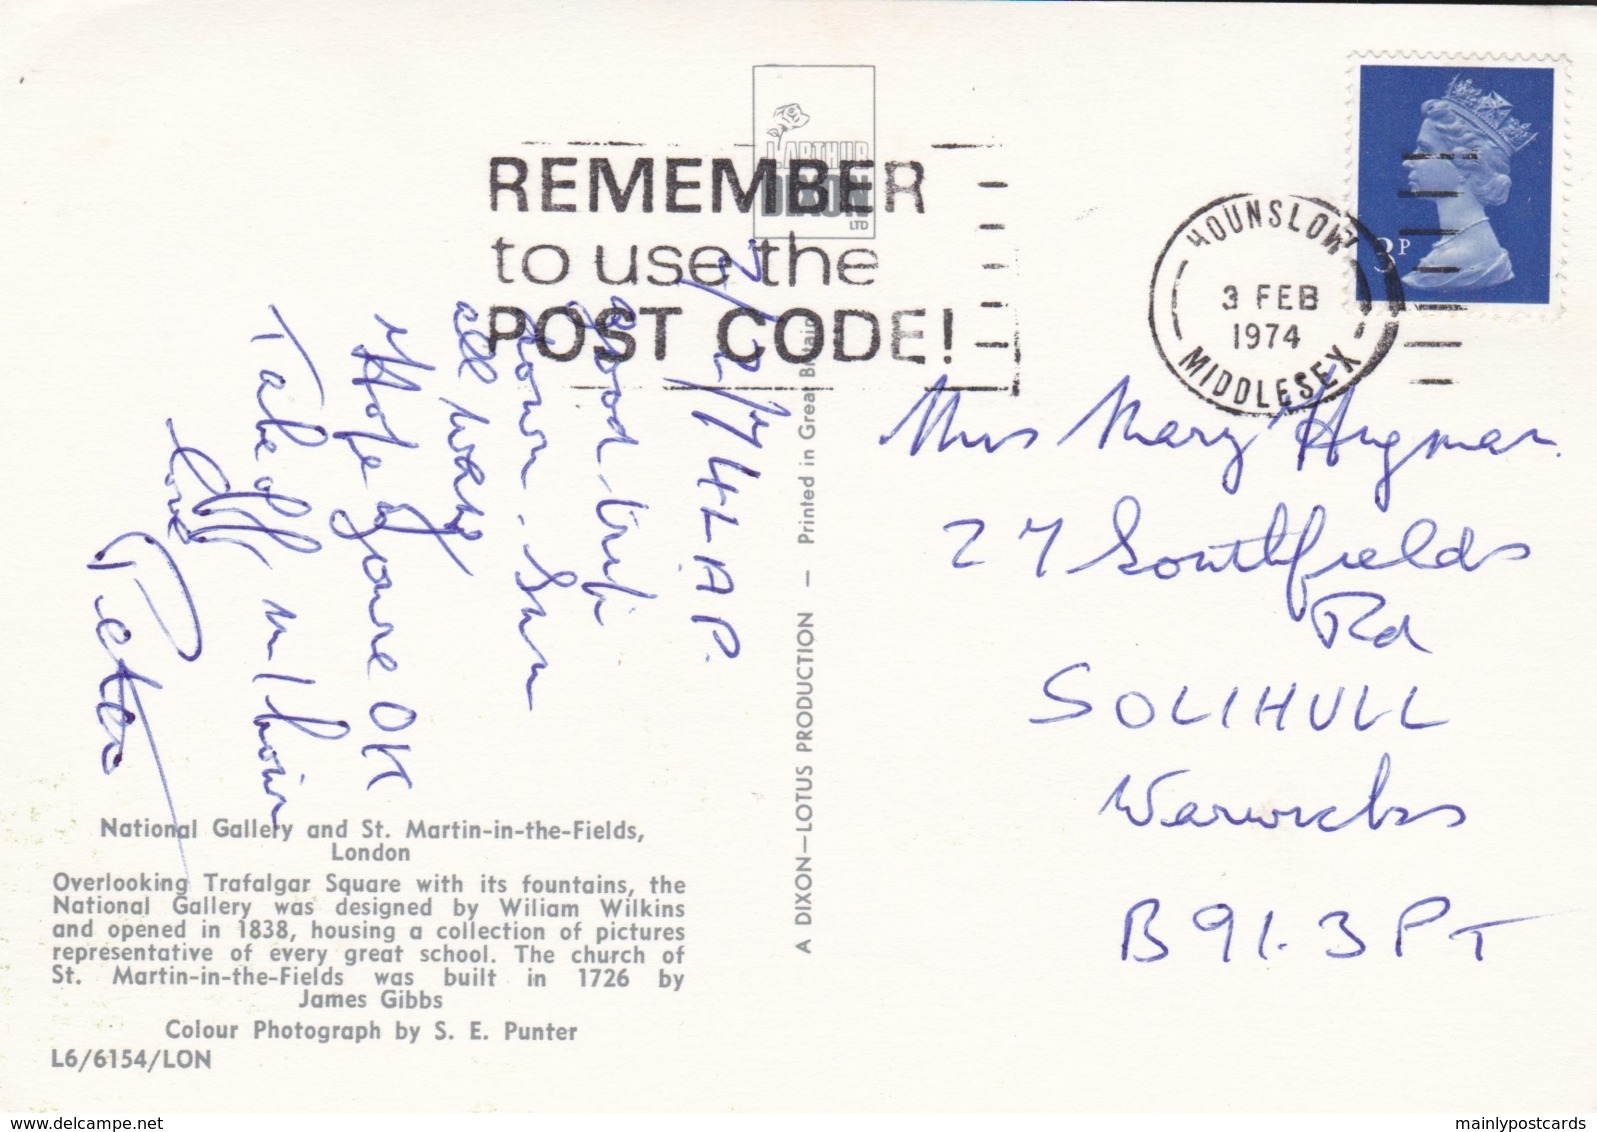 J. ARTHUR
DIXON
LTD
REMEMBER
to use the
POST CODE!
HOUNSLOW
3 FEB
1974
MIDDLESEX
3P
2/2/74 L.A.P.
a good trip
down. Sun
all way
Hope you're OK
Take off in 1 hour
love
Peter
Mrs Mary Hugman.
27 Southfields
Rd
SOLIHULL
Warwicks
B91.3PT
A DIXON—LOTUS PRODUCTION — Printed in Great Britain
National Gallery and St. Martin-in-the-Fields,
London
Overlooking Trafalgar Square with its fountains, the
National Gallery was designed by Wiliam Wilkins
and opened in 1838, housing a collection of pictures
representative of every great school. The church of
St. Martin-in-the-Fields was built in 1726 by
James Gibbs
Colour Photograph by S. E. Punter
L6/6154/LON
mainlypostcards